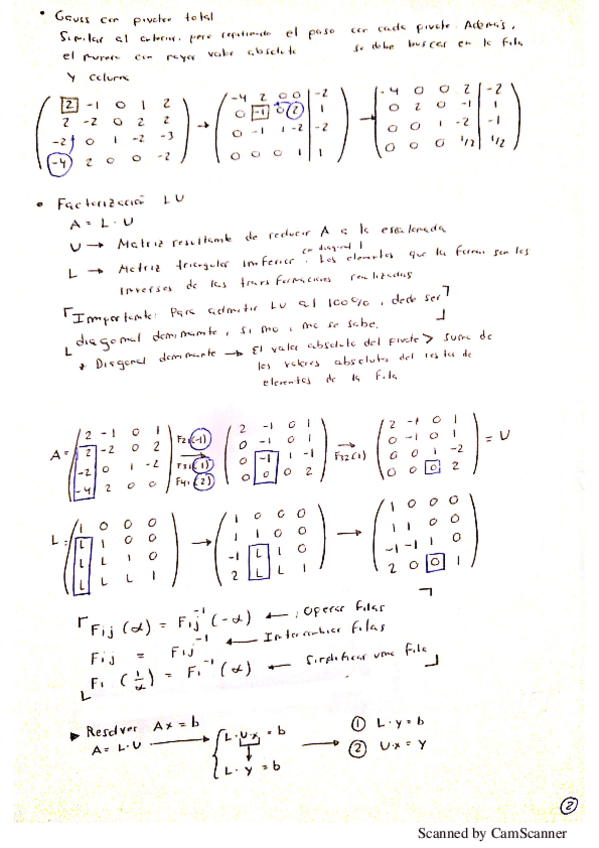 • Gauss con pivoteo total
Similar al anterior, pero repitiendo el paso con cada pivote. Además,
el numero con mayor valor absoluto se debe buscar en la fila
y columna
2 -1 0 1 2 -4 2 0 0 -2 -4 0 0 2 -2
2 -2 0 2 2 → 0 -1 0 2 1 → 0 2 0 -1 1
-2 0 1 -2 -3 0 -1 1 -2 -2 0 0 1 -2 -1
-4 2 0 0 -2 0 0 0 1 1 0 0 0 1/2 1/2
• Factorización LU
A = L · U
U → Matriz resultante de reducir A a la escalonada
L → Matriz triangular inferior con diagonal 1. Los elementos que la forman son los
inversos de las transformaciones realizadas
Importante: Para admitir LU al 100%, debe ser
diagonal dominante, si no, no se sabe.
* Diagonal dominante → El valor absoluto del pivote > suma de
los valores absolutos del resto de
elementos de la fila
2 -1 0 1 2 -1 0 1 2 -1 0 1
A = 2 -2 0 2 F21(-1) 0 -1 0 1 F32(1) 0 -1 0 1 = U
-2 0 1 -2 F31(1) 0 -1 1 -1 0 0 1 -2
-4 2 0 0 F41(2) 0 0 0 2 0 0 0 2
1 0 0 0 1 0 0 0 1 0 0 0
L = L 1 0 0 → 1 1 0 0 → 1 1 0 0
L L 1 0 -1 L 1 0 -1 -1 1 0
L L L 1 2 L L 1 2 0 0 1
Fij (α) = Fij⁻¹ (-α) ← Operar filas
Fij = Fij⁻¹ ← Intercambiar filas
Fi (1/α) = Fi⁻¹ (α) ← Simplificar una fila
▶ Resolver Ax = b
A = L·U → L·U·x = b → ① L·y = b
L·y = b ② U·x = y
2
Scanned by CamScanner